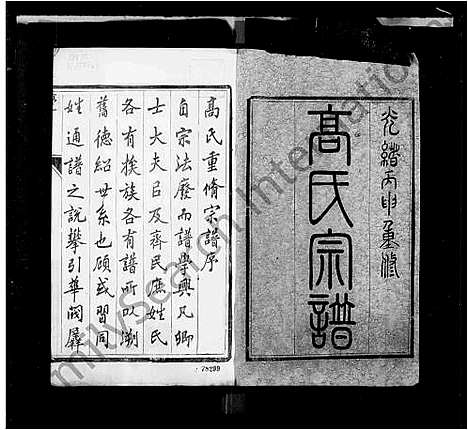 光緒丙申重修
高氏宗譜
高氏重脩宗譜序
自宗法廢而譜學興凡卿
士大夫以及齊民庶姓氏
各有族族各有譜所以溯
舊德紹世系也顧或習同
姓通譜之說攀引華閥
78299
FamilySearch International